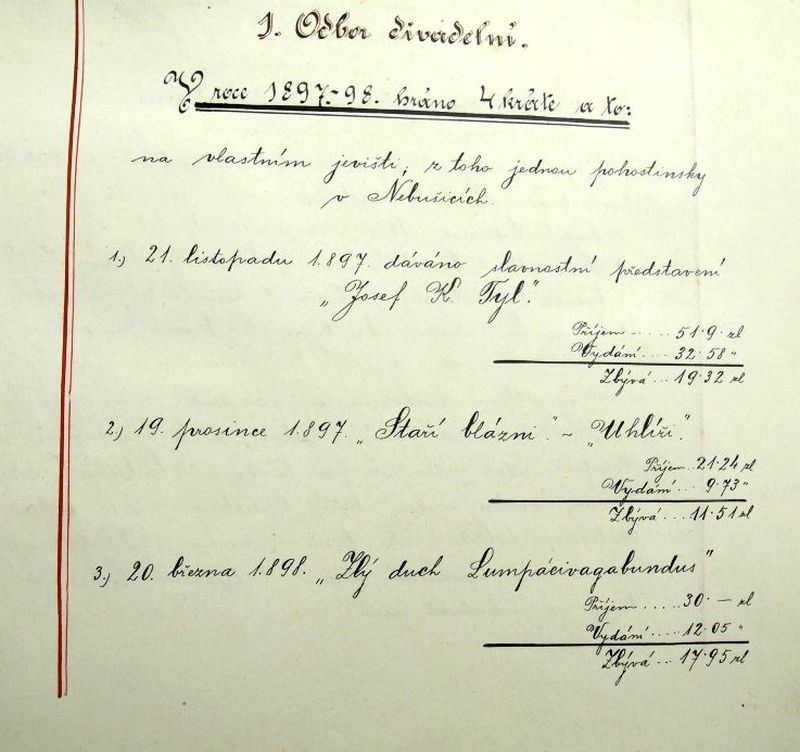 I. Odbor divadelní.
V roce 1897.-98. hráno 4 kráte a to:
na vlastním jevišti; z toho jednou pohostinsky
v Nebušicích.
1.) 21. listopadu 1.897. dáváno slavnostní představení
„Josef K. Tyl".
Příjem ..... 51·9· zl
Vydání .... 32·58 "
Zbývá ... 19·32 zl
2.) 19. prosince 1.897. „Staří blázni". - „Uhlíři".
Příjem .. 21·24 zl
Vydání ... 9·73 "
Zbývá ... 11·51 zl
3.) 20. března 1.898. „Zlý duch Lumpácivagabundus"
Příjem ..... 30·— zl
Vydání .... 12·05 "
Zbývá ... 17·95 zl